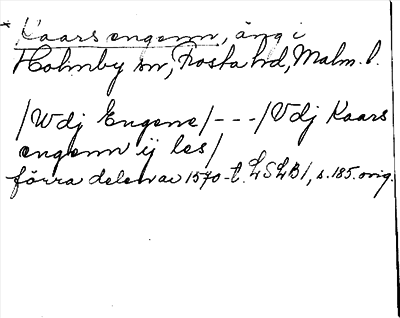 * Kaars engenn, äng i
Holmby sn, Frosta hd, Malm. l.
/Wdj Engene/ - - - /Vdj Kaars
engenn ij les/
förra delen av 1570-t. LSLB1, s. 185. orig.